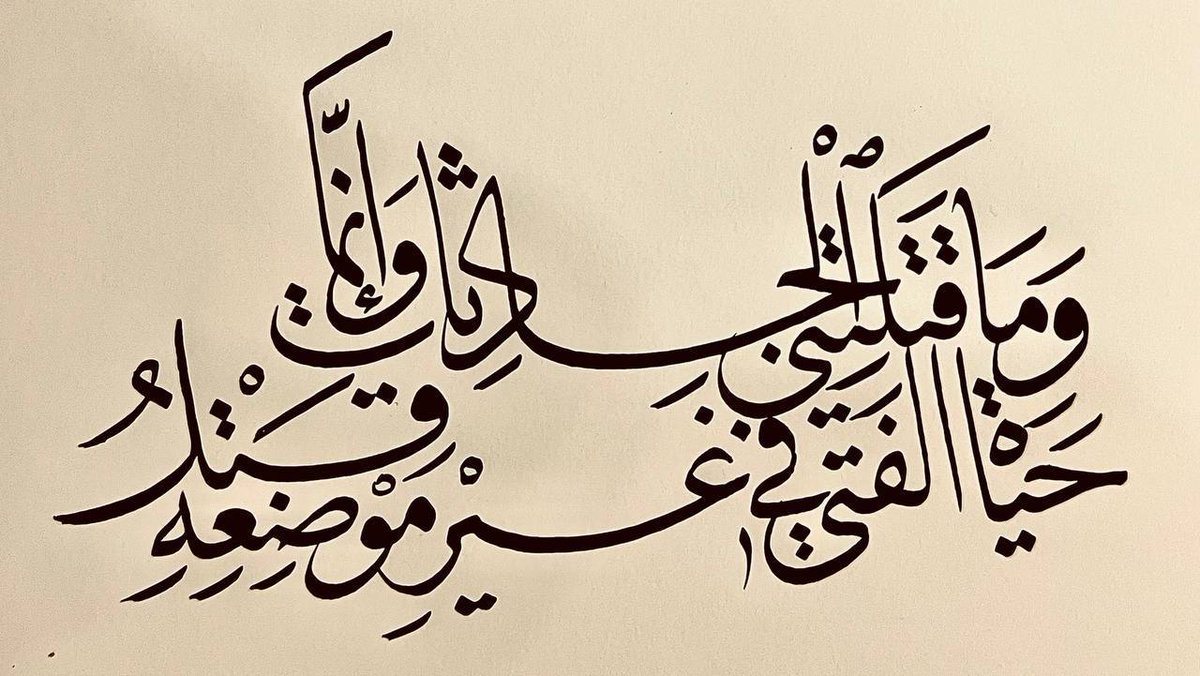 وَمَا قَتَلَتْنِي الْحَادِثَاتُ وَإِنَّمَا
حَيَاةُ الفَتَى فِي غَيْرِ مَوْضِعِهِ قَتْلُ